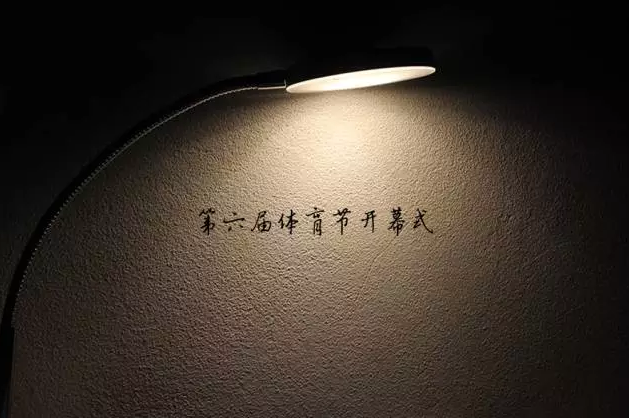 第六届体育节开幕式